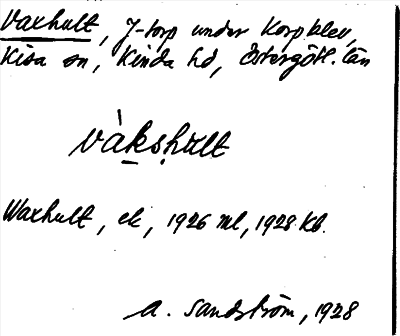 Vaxhult, J-torp under Korpklev,
Kisa sn, Kinda hd, Östergötl. län
vàkshult
Waxhult, ek, 1926 ml, 1928 Kb.
A. Sandström, 1928